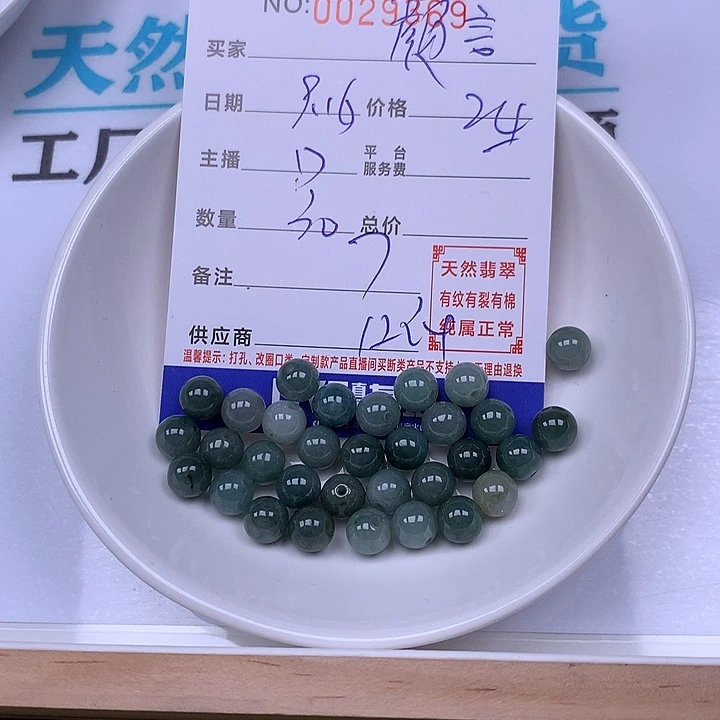 天然
货
工厂
NO:0029369
买家 颜言
日期 9.16 价格 24
主播 17 平台服务费
数量 30 总价
备注 7
供应商 1224
天然翡翠
有纹有裂有棉
纯属正常
温馨提示：打孔、改圈口类、定制款产品直播间买断类产品不支持
理由退换